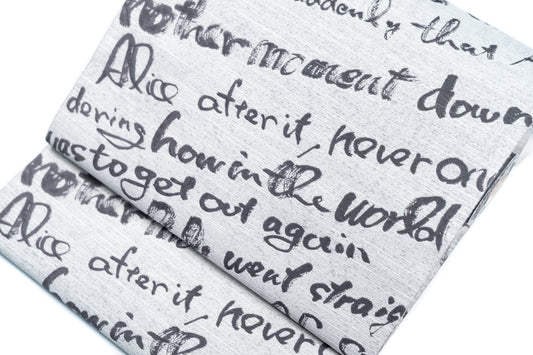 suddenly that
nother moment down
Alice after it, never on
dering how in the world
was to get out again
nother m
went straig
Alice after it, never
how in the